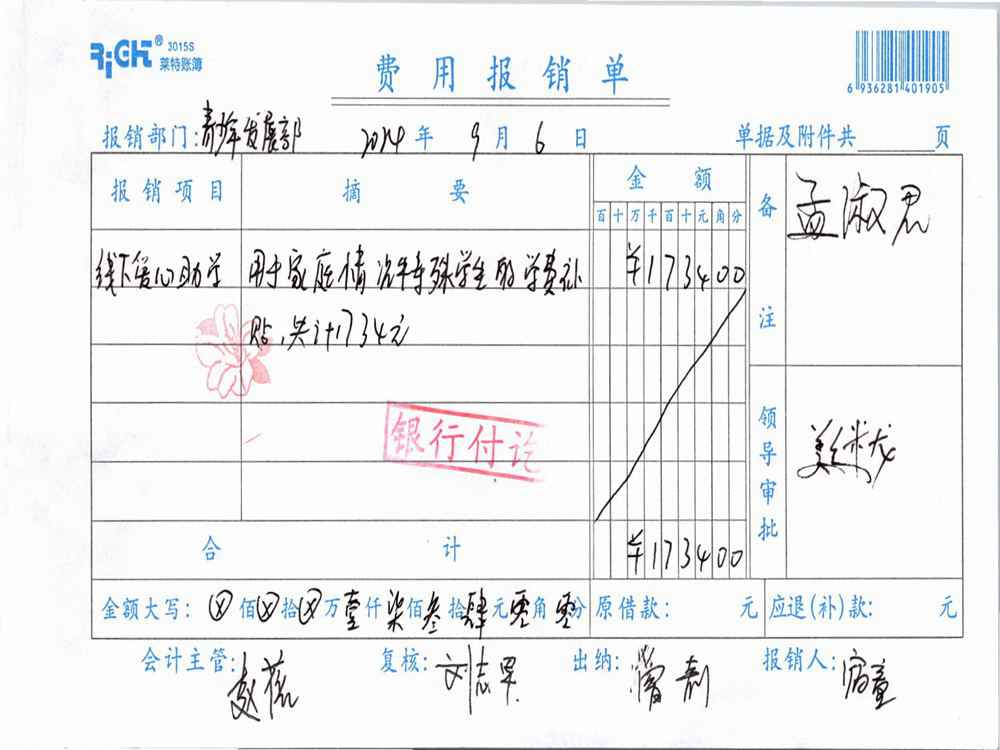 RiGHT® 3015S
莱特账簿
费用报销单
6 936281 401905
报销部门:青少年发展部 2024年9月6日 单据及附件共 页
报销项目 摘要 金额 备注 孟淑君
百十万千百十元角分
线下爱心助学 用于家庭情况特殊学生的学费补 ¥173400
贴,共计1734元
银行付讫
领导审批
合计 ¥173400
金额大写: ⊗佰⊗拾⊗万壹仟柒佰叁拾肆元零角零分 原借款: 元 应退(补)款: 元
会计主管: 复核:刘志军 出纳: 报销人: